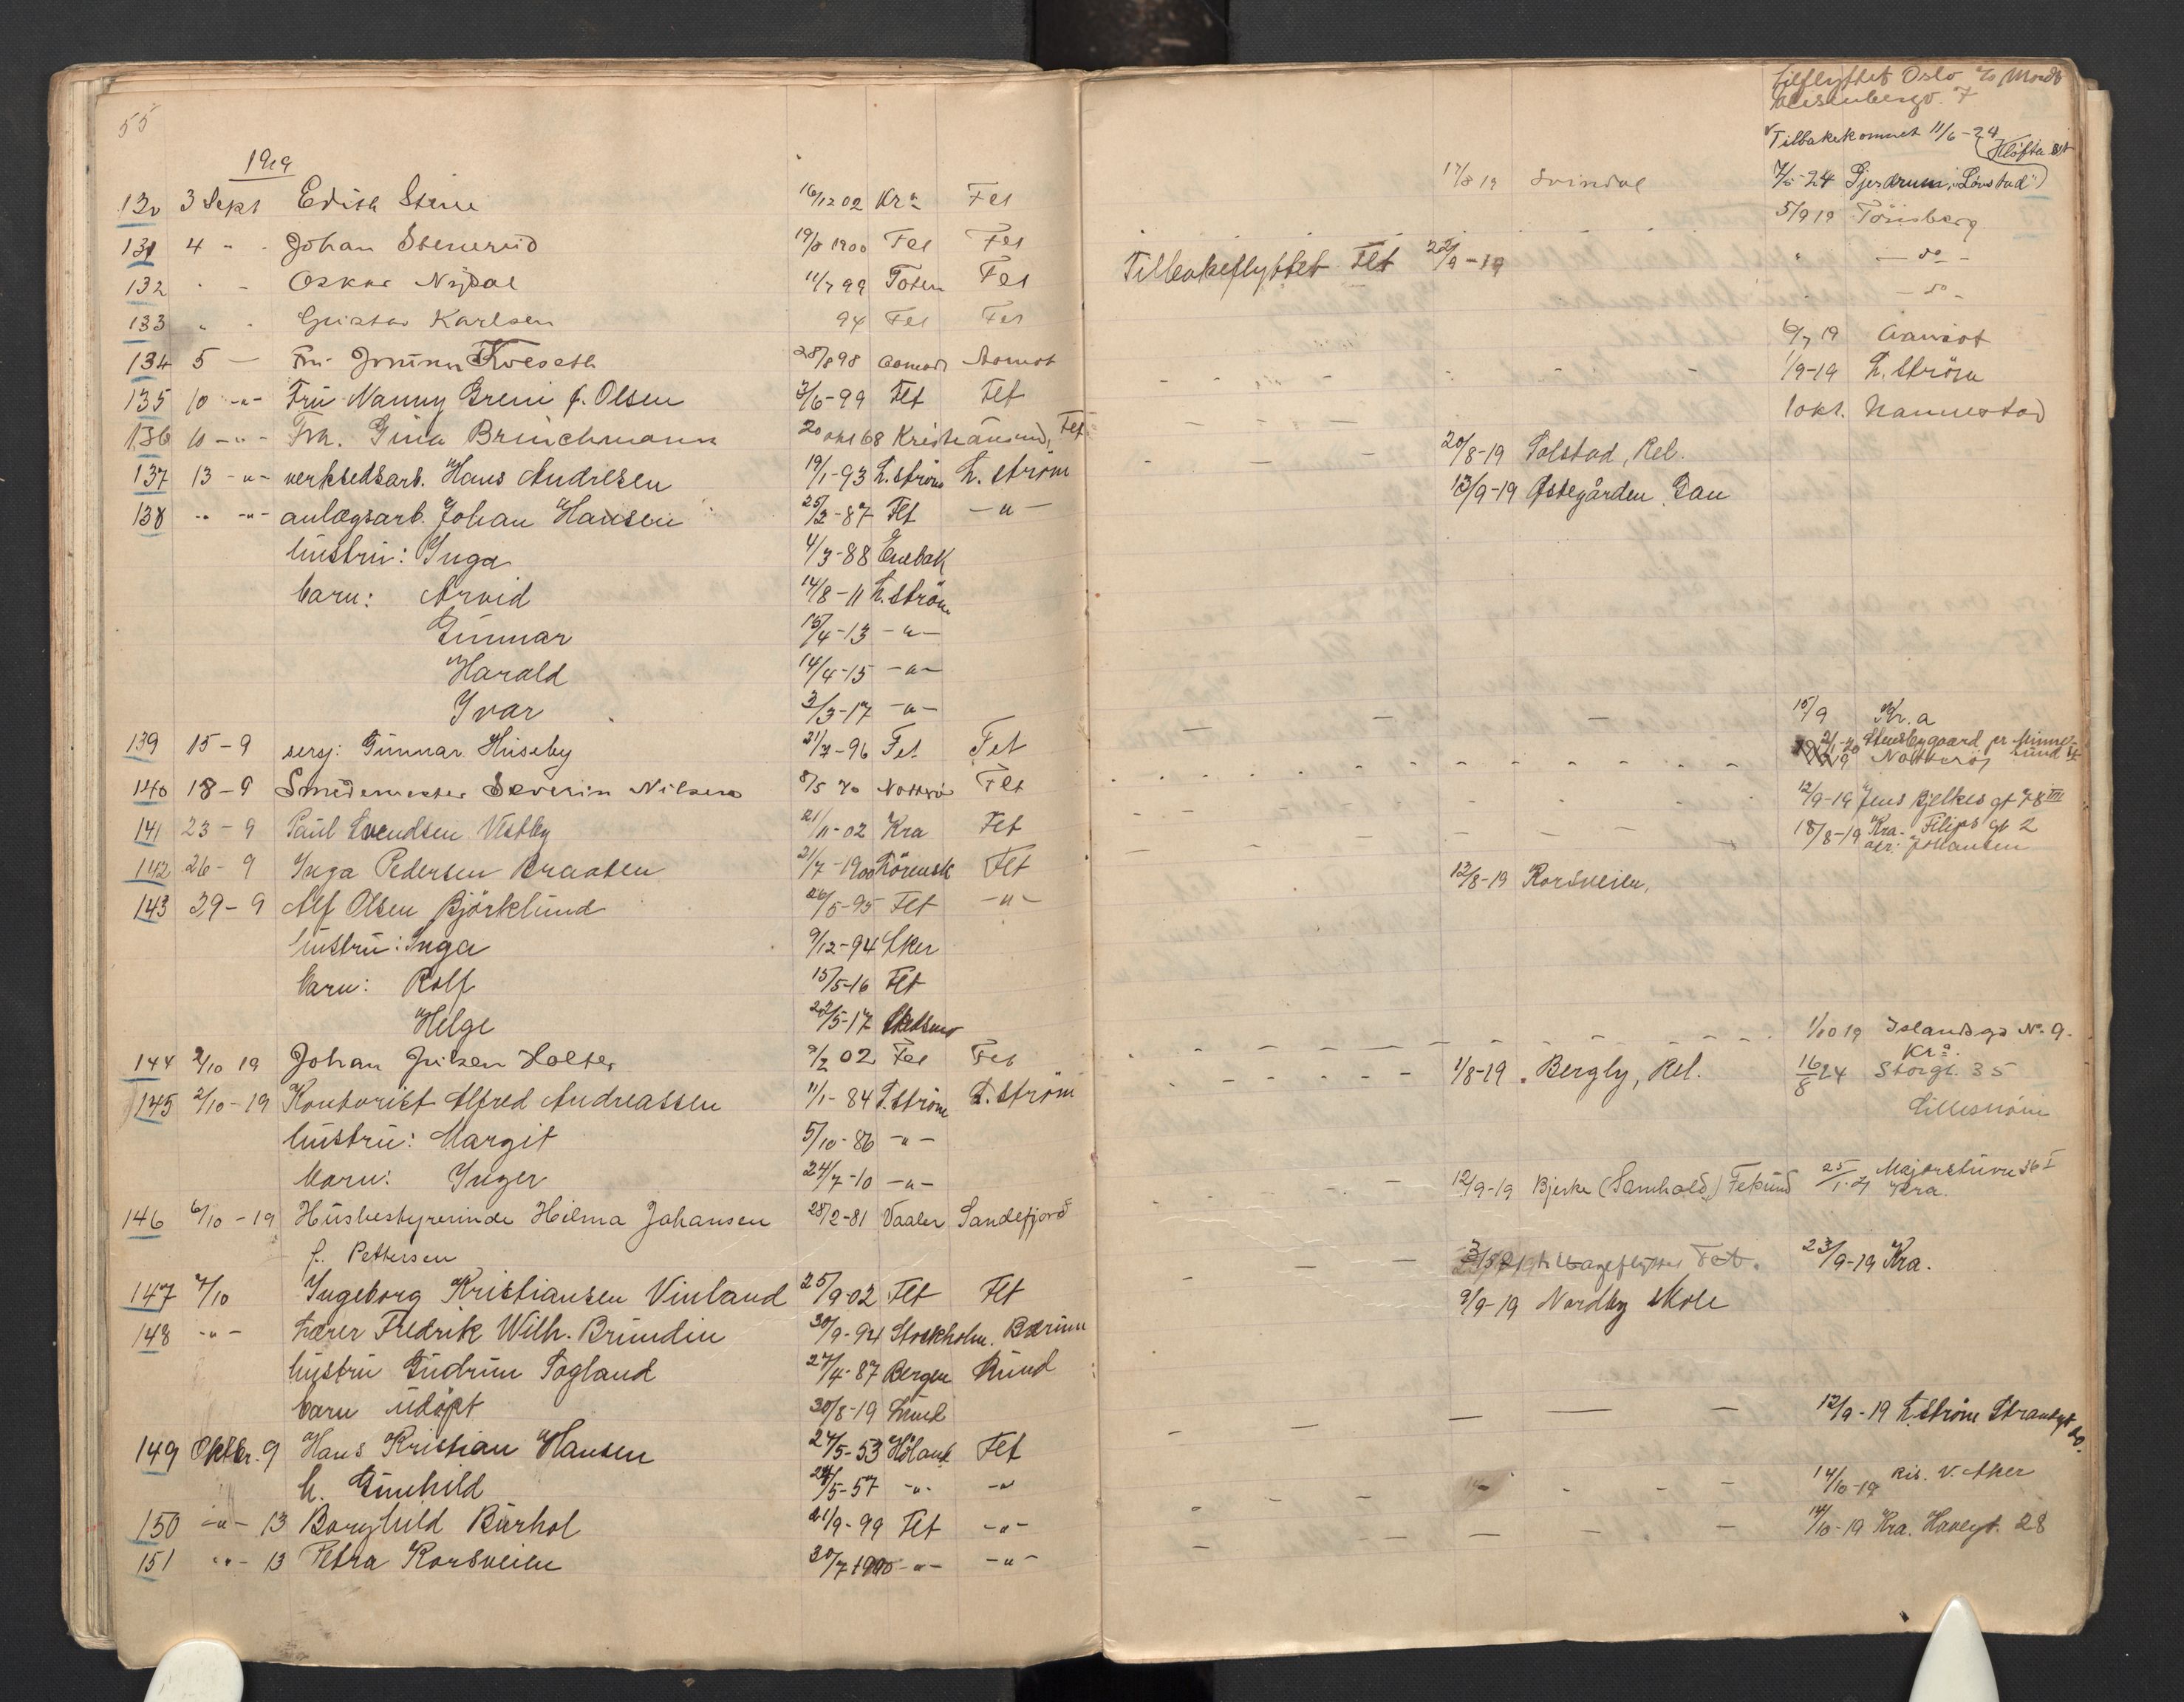 55
1919
130 3 Sept Edith Stene 16/12 02 Kra Fet
131 4 " - Johan Stenerud 19/8 1900 Fet Fet
132 " - Oskar Nydal 11/7 99 Toten Fet
133 " - Gustav Karlsen 94 Fet Fet
134 5 — Frk. 28/8 98 Aamot
135 10 -"- Fru Nanny Greni f. Olsen 3/6-99 Fet Fet
136 10 -"- Frk. Gina Brinchmann 20 okt 68 Kristiansund, Fet
137 13 -"- verkstedsarb. Hans Andresen 19/1-93 L.strøm L. strøm
138 " -"- anlægsarb. Johan Hansen 25/2-87 Fet -"-
hustru: Inga 4/3-88 Enebak
barn: Arvid 14/8-11 L.strøm
Gunnar 15/4-13 -"-
Harald 14/4-15 -"-
Ivar 3/3-17 -"-
139 15-9 serg: Gunnar Huseby 21/7-96 Fet Fet
140 18-9 Smedemester Severin Nilsen 8/5 70 Nøtterø Fet
141 23-9 Paul Svendsen Vestby 21/11-02 Kra Fet
142 26-9 Inga Pedersen Braaten 21/7-1900 Lørensk Fet
143 29-9 Alf Olsen Björklund 26/5-95 Fet -"-
hustru: Inga 9/12-94 Eker
barn: Rolf 15/5-16 Fet
Helge 22/5-17 Skedsmo
144 2/10 19 Johan Holter 9/2 02 Fet Fet
145 2/10-19 Kontorist Alfred Andreassen 11/1-84 L.strøm L.strøm
hustru: Margit 5/10-86 -"-
barn: Inger 24/7-10 -"-
146 6/10-19 Husbestyrerinde Hilma Johansen 28/2-81 Vaaler Sandefjord
f. Pettersen
147 7/10 Ingeborg Kristiansen Vinland 25/9-02 Fet Fet
148 -"- Lærer Fredrik Wilh. Brundin 30/9-94 Stockholm. Bærum
hustru Gudrun Sogland 27/4-87 Bergen
barn udöpt 30/8-19 Lund
149 Oktbr. 9 Hans Kristian Hansen 24/5-53 Höland Fet
h. Gunhild 24/5-57 -"- -"
150 -"- 13 Borghild Burhol 21/9-99 Fet -"-
151 "- 13 Petra Korsveien 30/7 1900 -"- -"-
tilflyttet Oslo
Tilbakekommet 11/6-24
17/8 19 Svindal 7/5-24 Gjerdrum, "Løvstad")
5/9 19 Tönsberg
Tilbakeflyttet Fet 22/9-19 " — do —
— do —
6/9 19 Aamot
1/9-19 L. Ström
1 okt. Nannestad
20/8-19 Solstad, Rel.
13/9-19 Østegården, Gan
15/9 Kr.a
2/1-20 Stensbygaard pr Minnesund st
Nøtterøy
12/9-19 Jens Bjelkes gt 78 III
18/8-19 Kra. Filips gt 2
adr: Johansen
12/8-19 Korsveien,
1/10 19 Islandsgt No 9.
Kra.
1/8-19. Bergly, Rel. 16/8 24 Storgt. 35
Lilleström
12/9-19 Bjerke (Samhold,) Fetsund 25/1- Majorstuvn 36 I
Kra.
tilbageflyttet Fet. 23/9-19 Kra.
9/9-19 Nordby skole
12/9-19 L.strøm Strandgt 20.
14/10-19 Ris. V. Aker
14/10-19 Kra. 28